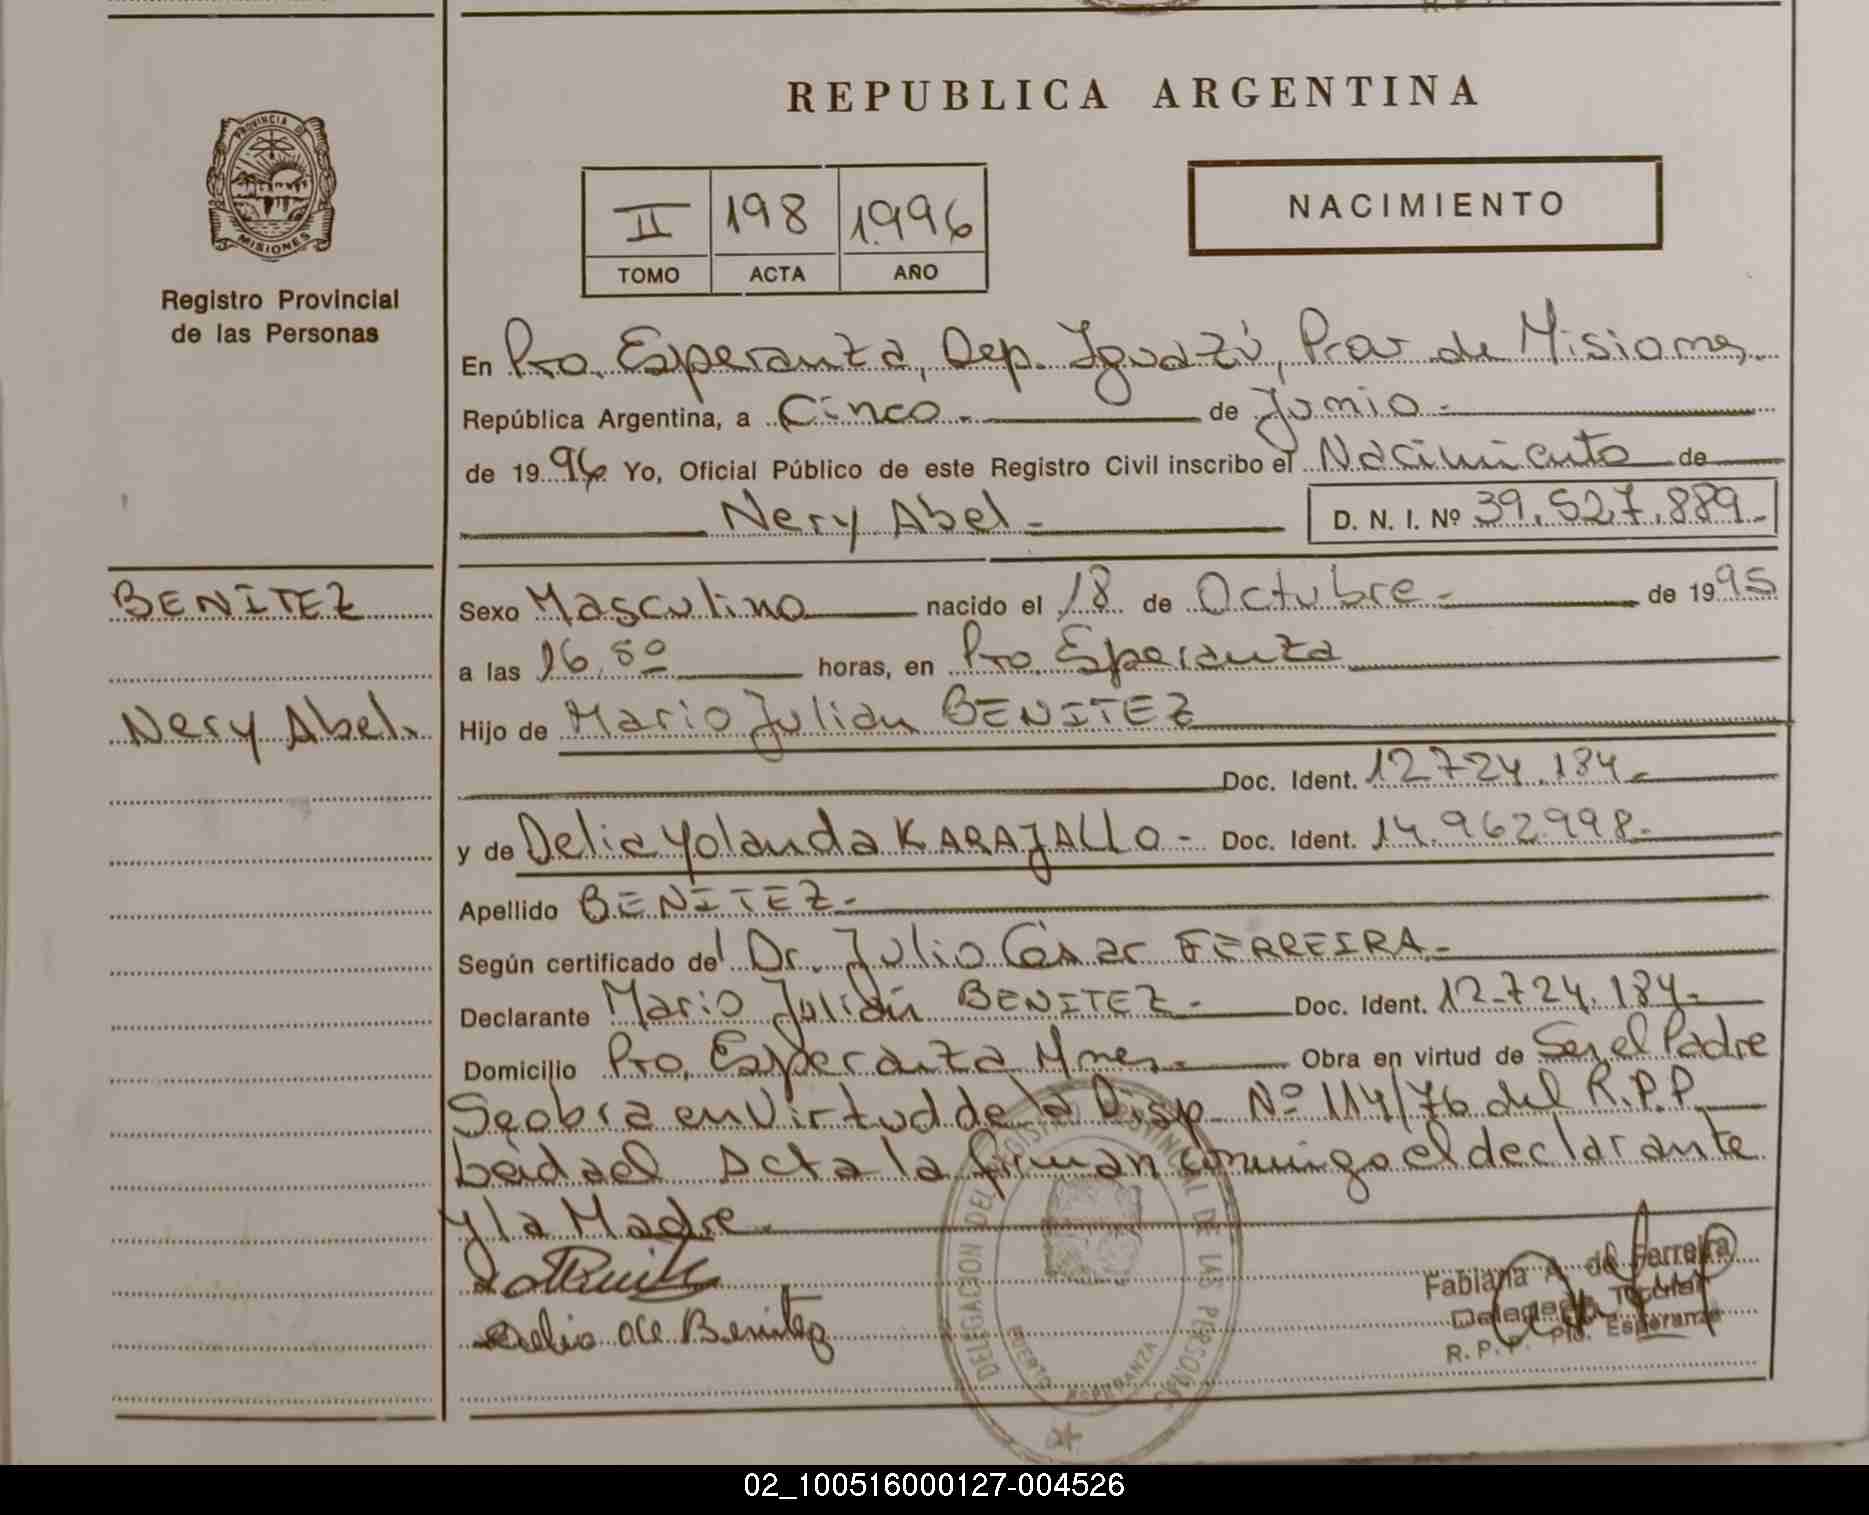 REPUBLICA ARGENTINA
PROVINCIA DE
MISIONES
Registro Provincial
de las Personas
II 198 1996
TOMO ACTA AÑO
NACIMIENTO
En Pto. Esperanza, Dep. Iguazú, Prov de Misiones
República Argentina, a Cinco.- de Junio.-
de 1996 Yo, Oficial Público de este Registro Civil inscribo el Nacimiento de
Nery Abel.-
D. N. I. Nº 39.527.889.-
BENITEZ
Nery Abel.
Sexo Masculino nacido el 18 de Octubre.- de 1995
a las 16,50 horas, en Pto Esperanza
Hijo de Mario Julian BENITEZ
Doc. Ident. 12.724.184.-
y de Delia Yolanda KARAJALLO.- Doc. Ident. 14.962.998.-
Apellido BENITEZ.-
Según certificado del Dr. Julio César FERREIRA.-
Declarante Mario Julián BENITEZ.- Doc. Ident. 12.724.184.-
Domicilio Pto. Esperanza Mnes.- Obra en virtud de Ser el Padre
Se obra en Virtud de la Disp. Nº 114/76 del R.P.P.
Leida el Acta la firman conmigo el declarante
y la Madre.-
Benitez
DELEGACION DEL REGISTRO PROVINCIAL DE LAS PERSONAS
PUERTO ESPERANZA
Fabiana A. de Ferreira
Delegada Titular
R. P. P. Pto. Esperanza
02_100516000127-004526